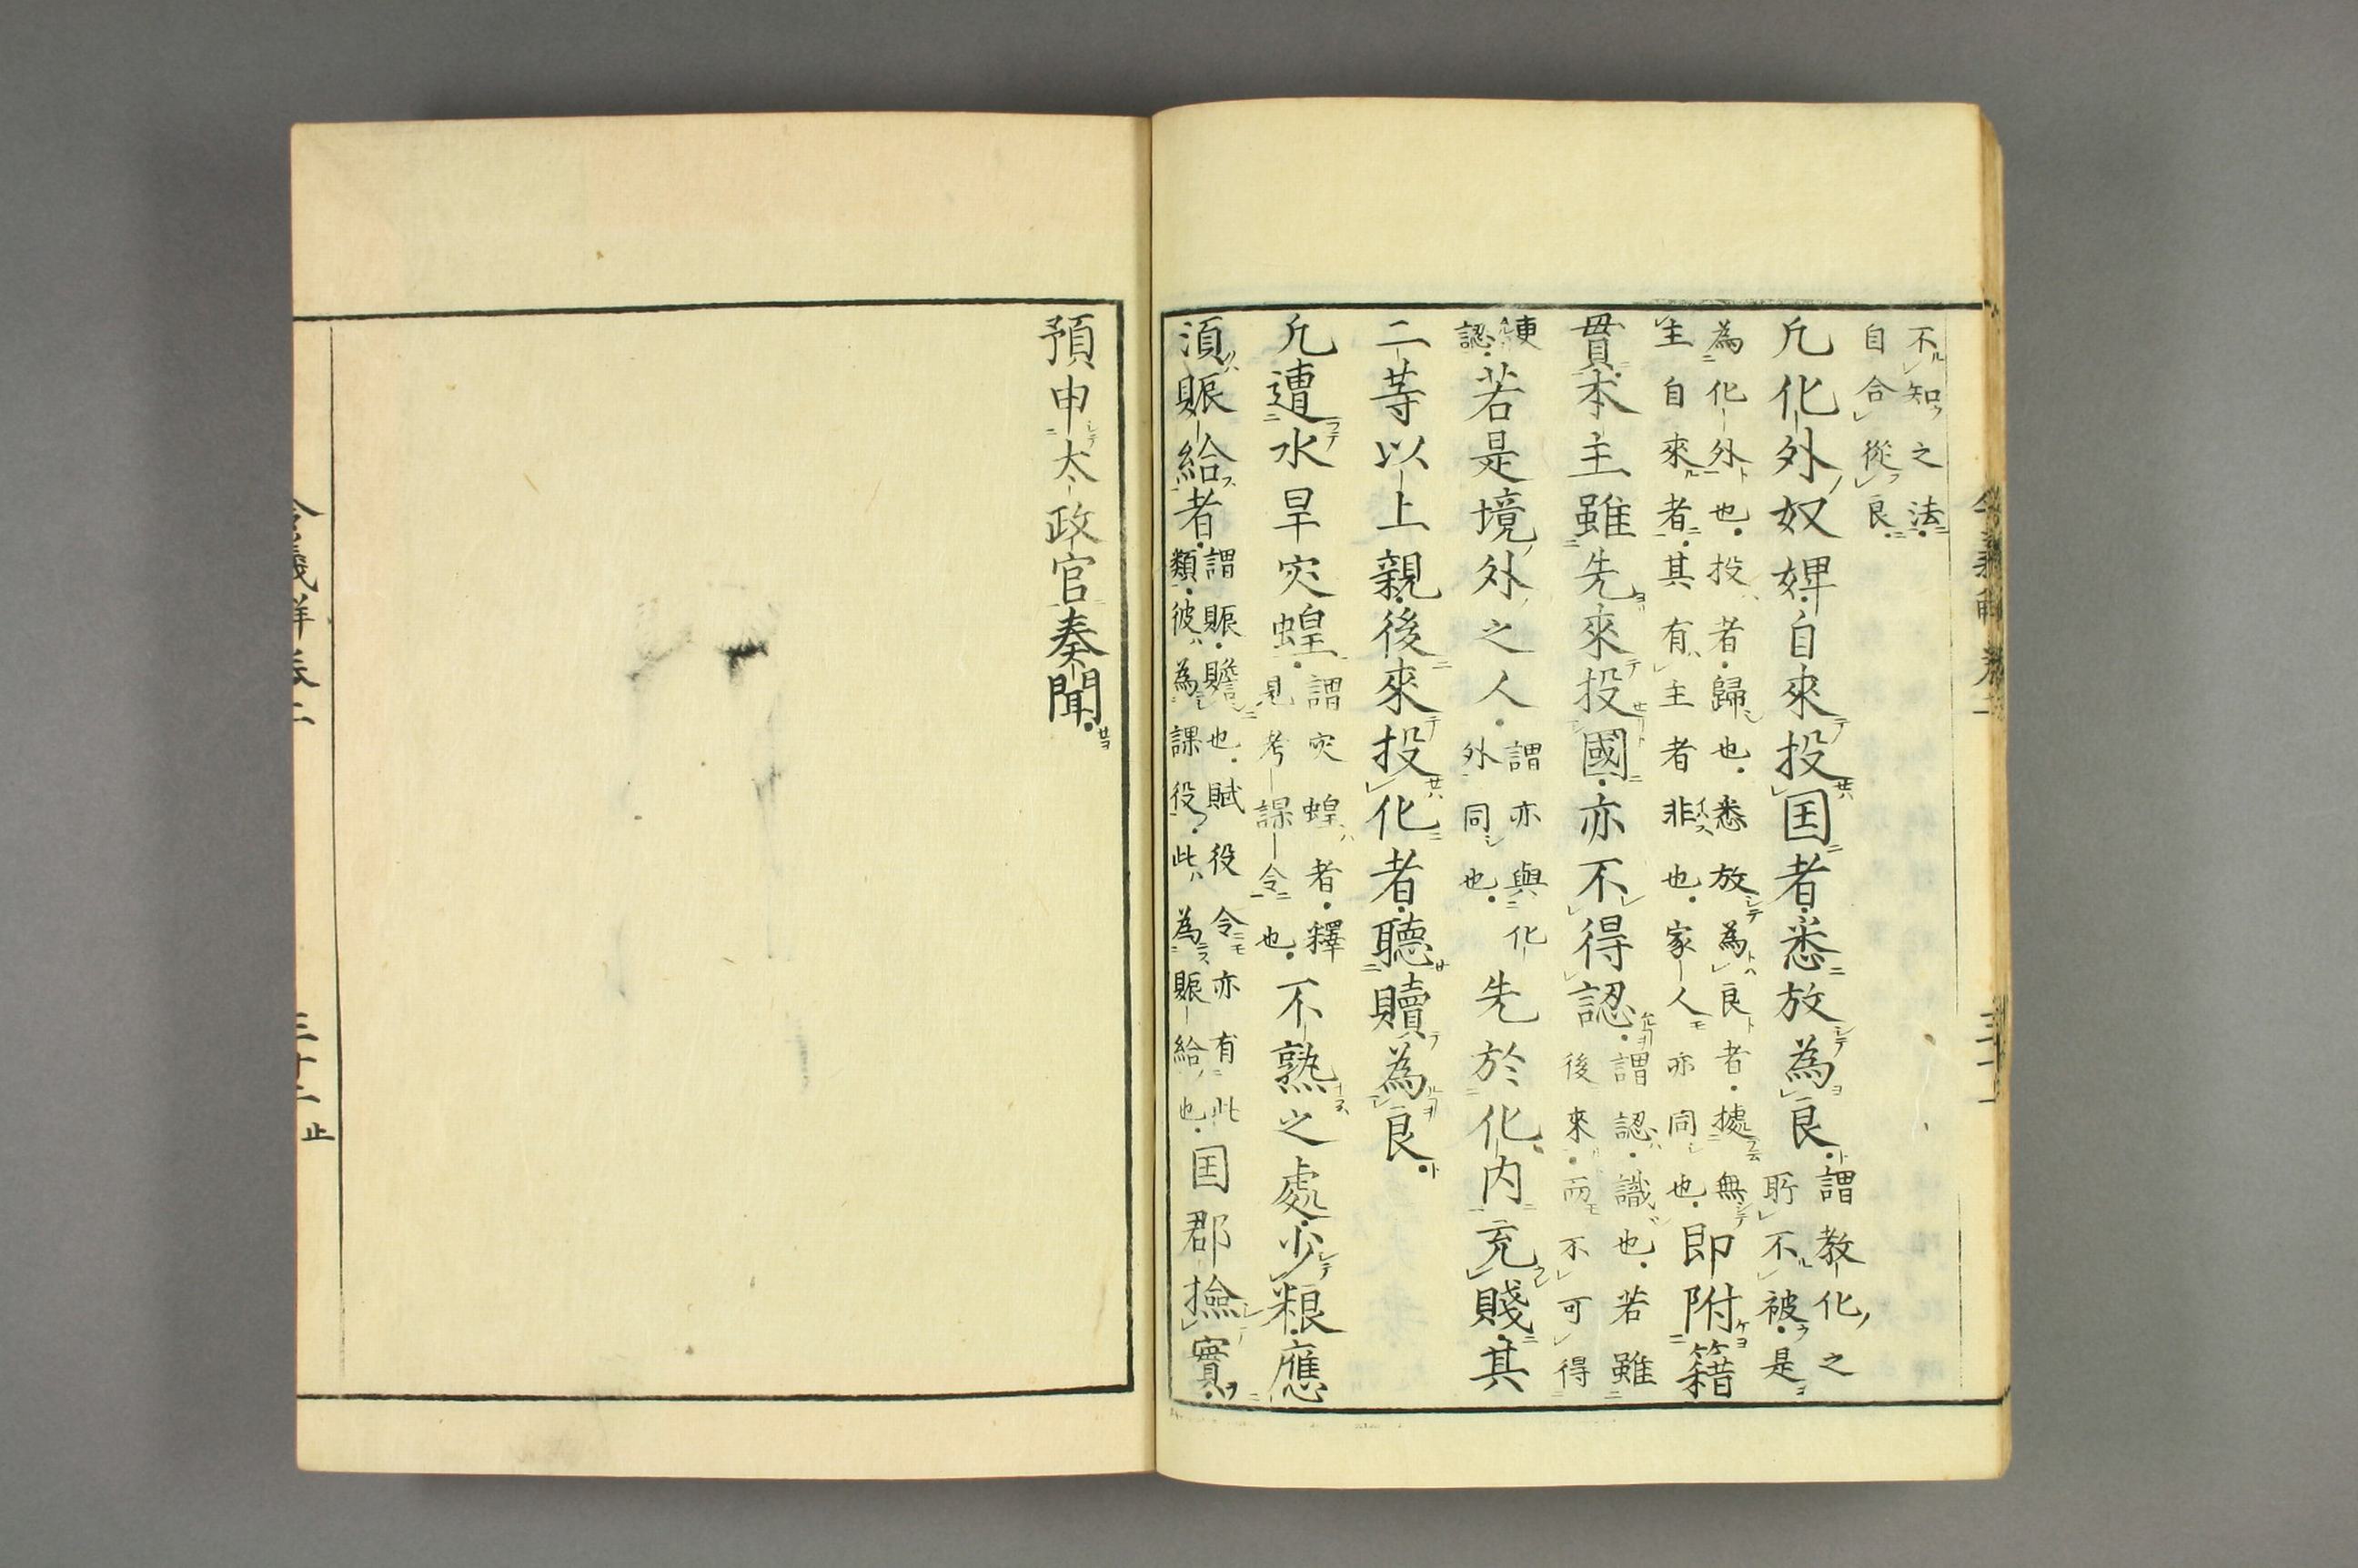 不知之法
自合從良
凢化外奴婢自來投囯者悉放為良謂教化之
聍不被是
為化外也投者歸也悉放為良者據無
主自來者其有主者非也家人亦同也即附籍
貫本主雖先來投國亦不得認謂認識也若雖
後來而不可得
更
認若是境外之人謂亦與化
外同也先於化内充賤其
二等以上親後來投化者聽贖為良
凢遭水旱灾蝗謂灾蝗者釋
見考課令也不熟之處少粮應
須賑給者謂賑贍也賦役令亦有此
類彼為課役此為賑給也囯郡撿實
預申太政官奏聞